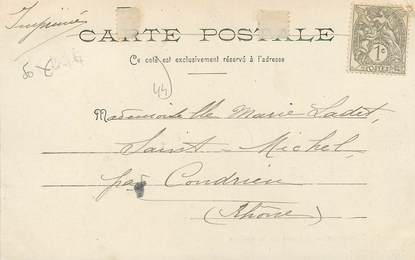 Imprimés
CARTE POSTALE
Ce coté est exclusivement réservé à l'adresse
44
Mademoiselle Marie Ladet,
Saint-Michel,
par Condrieu
(Rhône)
1c
POSTES